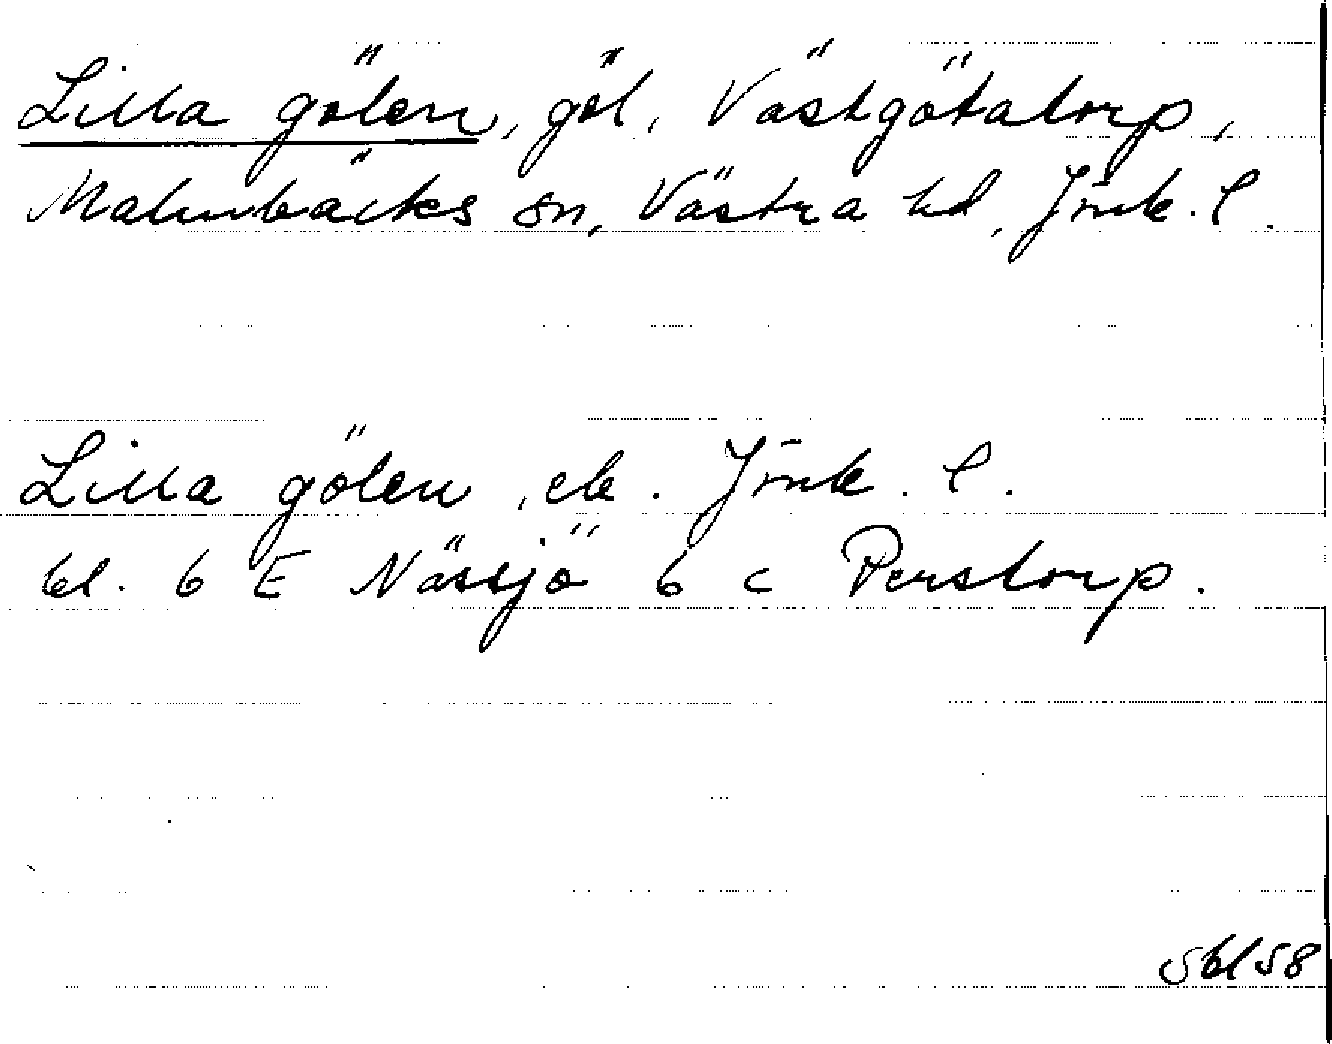 Lilla gölen, göl, Västgötatorp,
Malmbäcks sn, Västra hd, Jönk. l.
Lilla gölen, ek. Jönk. l.
bl. 6 E Nässjö 6 c Perstorp.
Sbl 58